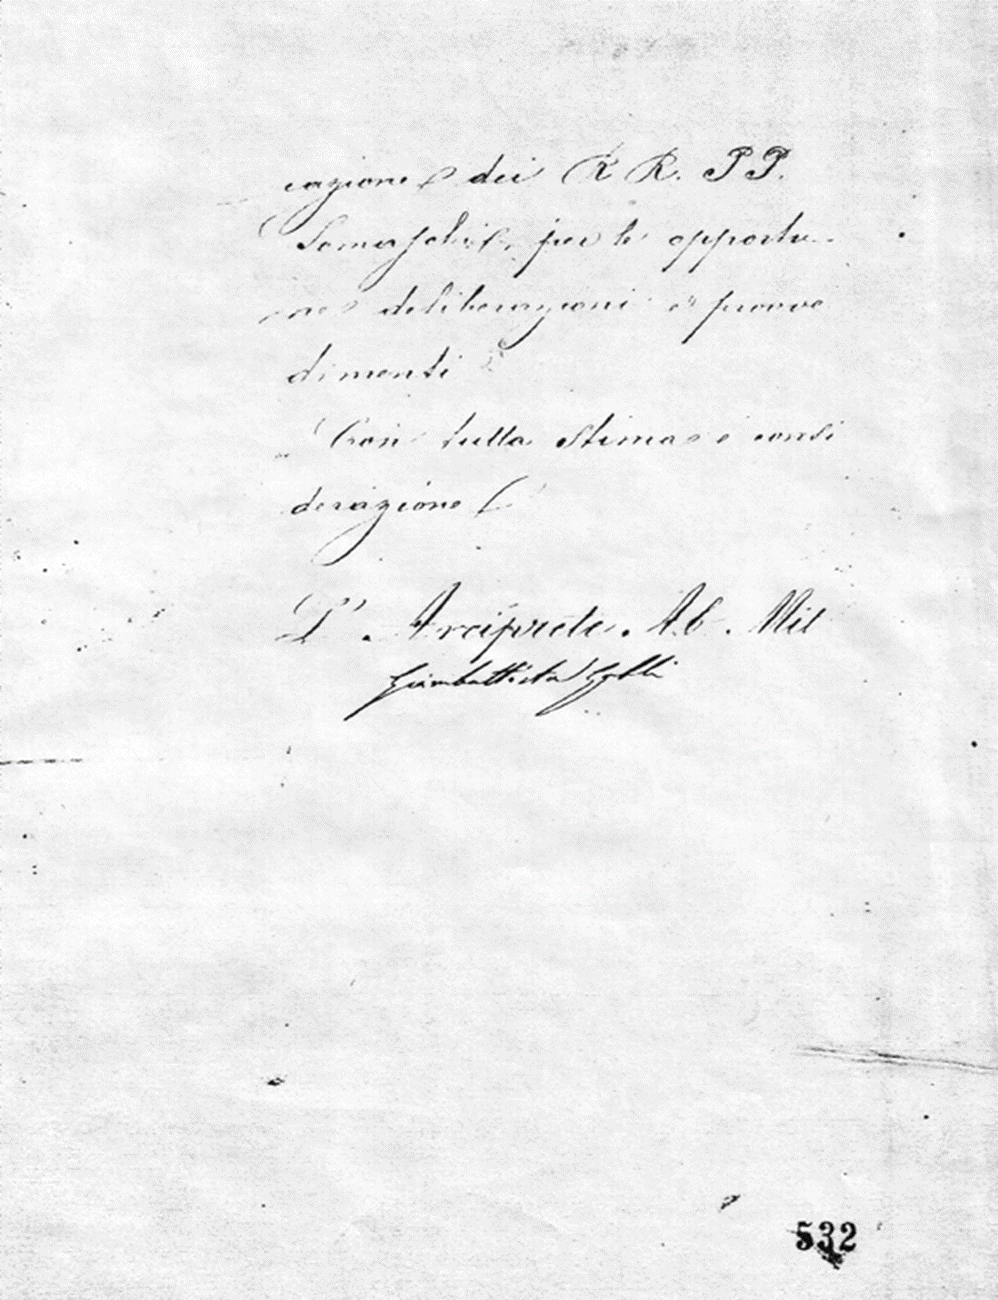 cazione dei R R. P P.
Somaschi per le opportu-
ne deliberazioni e provve
dimenti
Con tutta stima e consi
derazione
L'. Arciprete. Ab. Mit
Giambattista
532